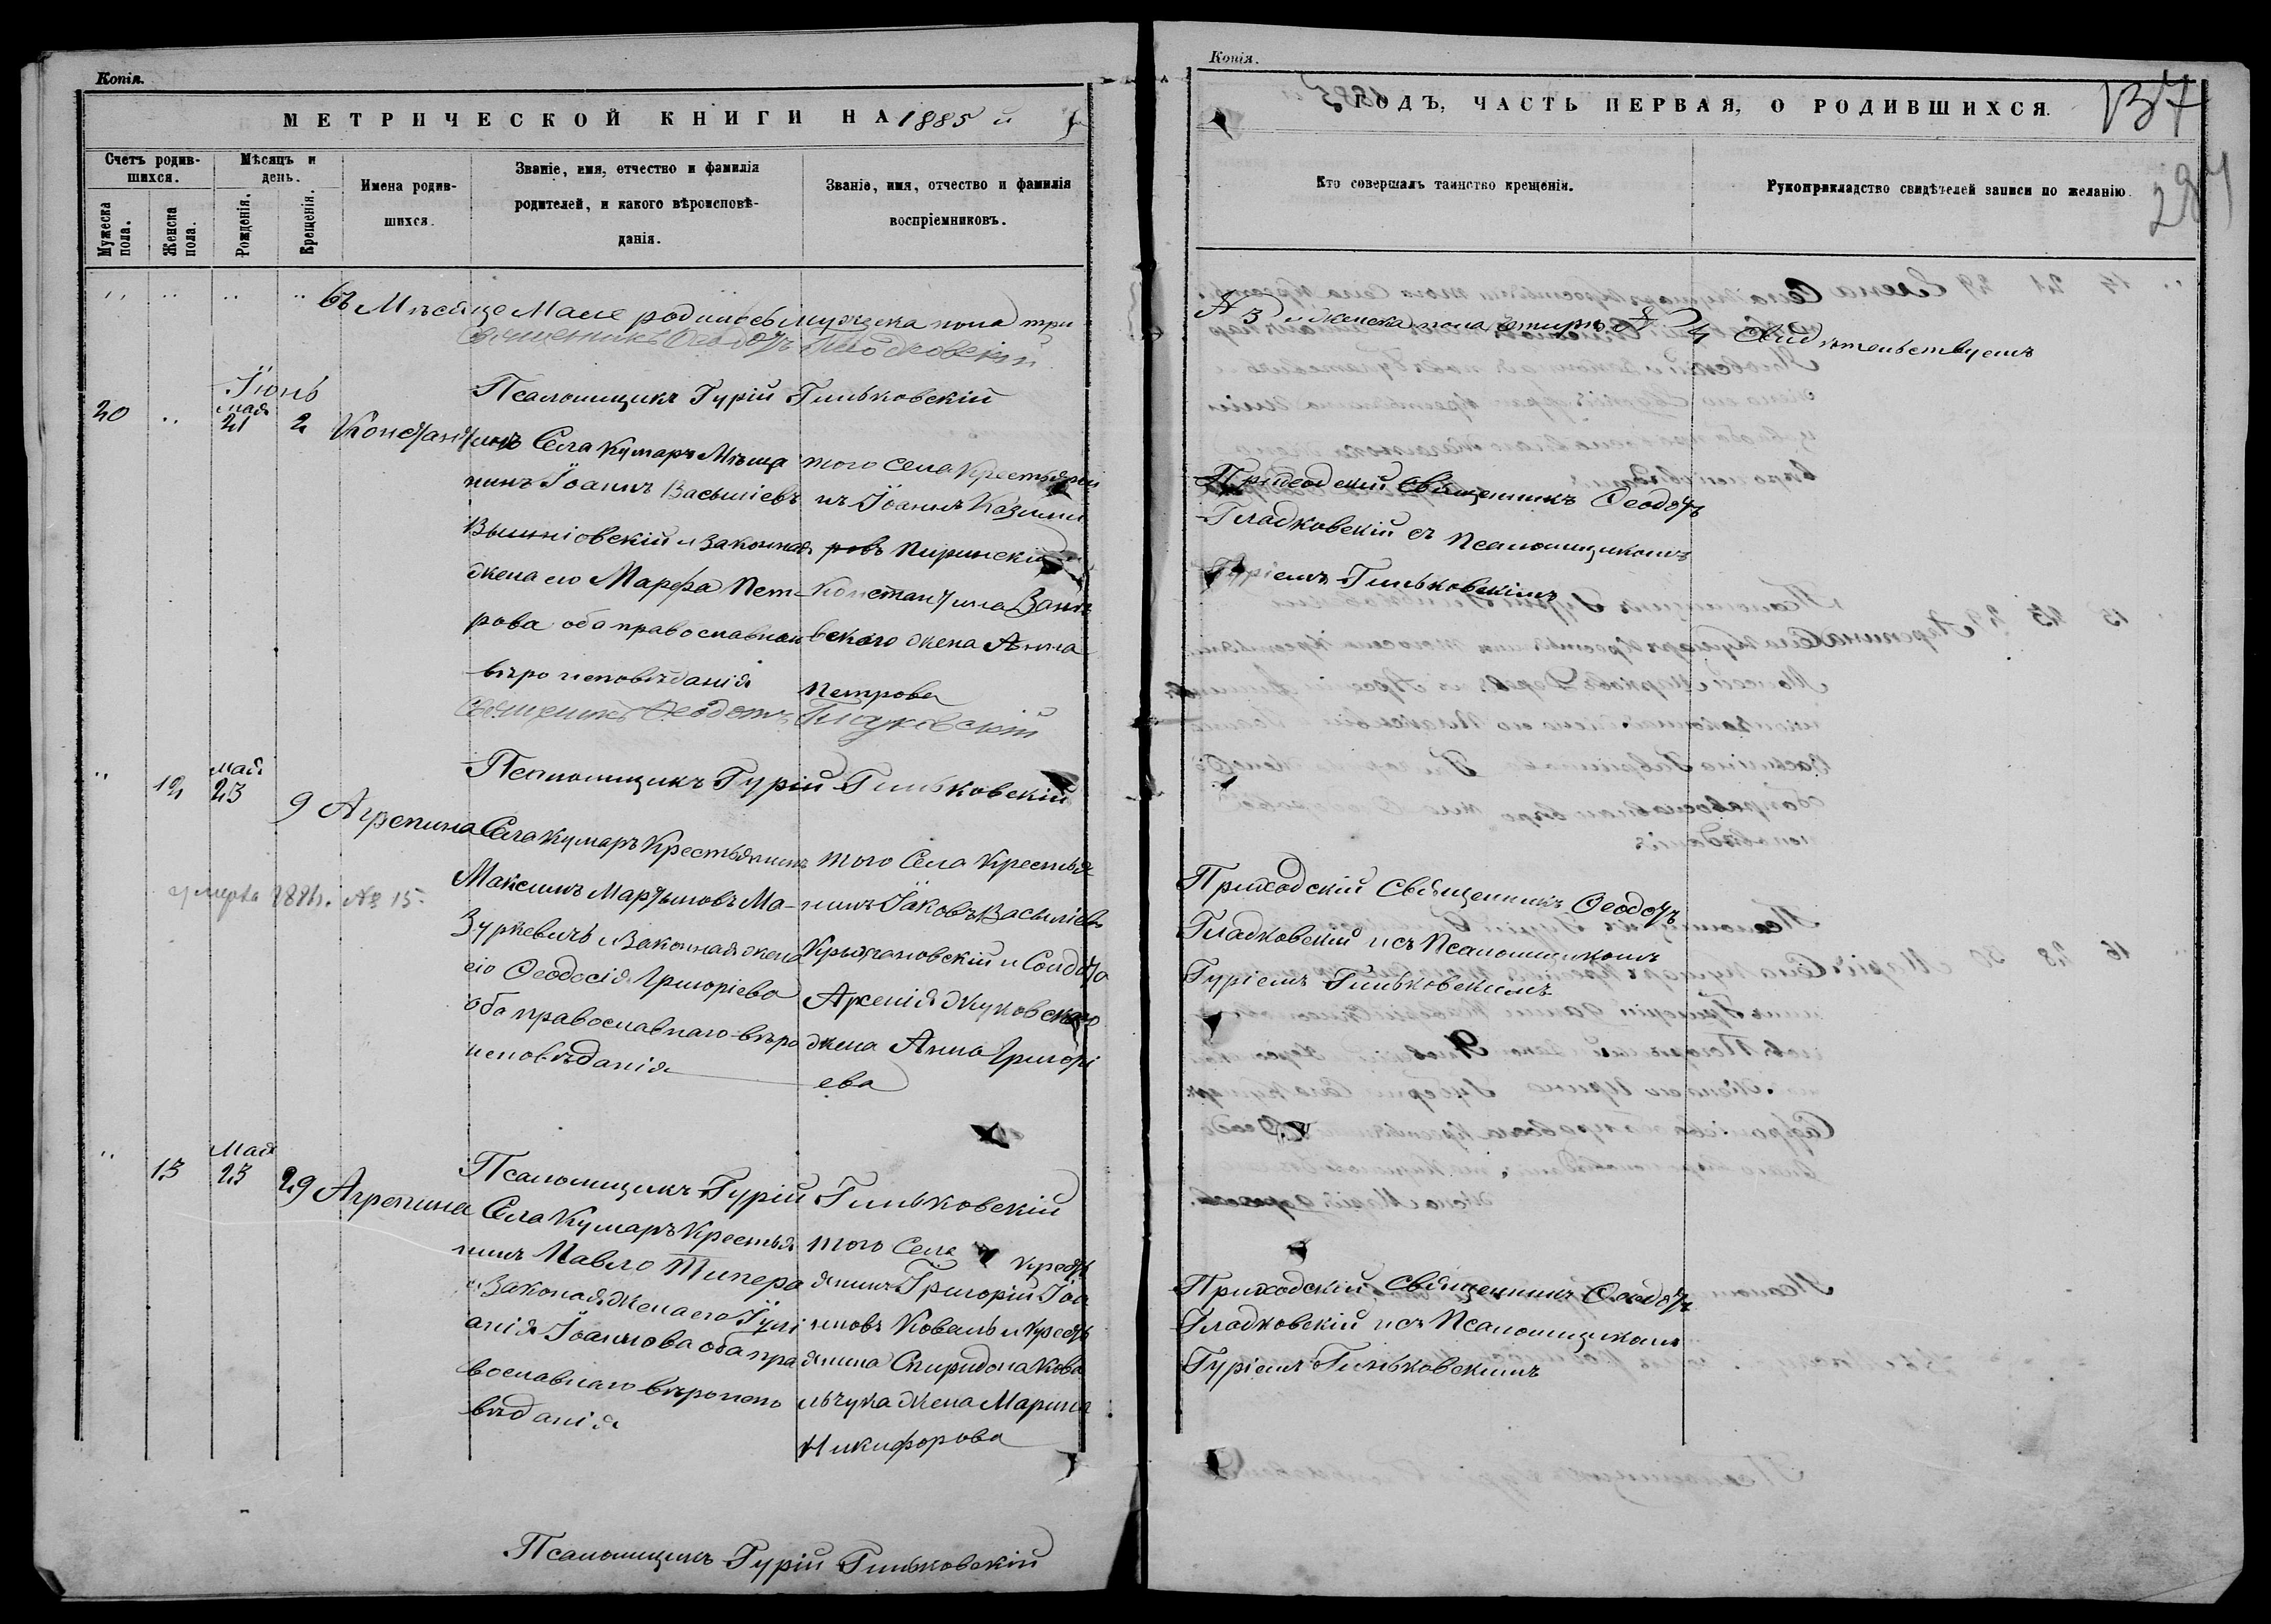 Копія.
МЕТРИЧЕСКОЙ КНИГИ НА 1885 й
Счетъ родив-
шихся.
Мужеска
пола.
Женска
пола.
Мѣсяцъ и
день.
Рожденія.
Крещенія.
Имена родив-
шихся.
Званіе, имя, отчество и фамилія
родителей, и какого вѣроисповѣ-
данія.
Званіе, имя, отчество и фамилія
воспріемниковъ.
въ Мѣсяце Мае родилось мужеска пола три
Священникъ Ѳеодотъ Гладковскій
Псаломщикъ Гурій Гильковскій
Іюнь
20 мая 21 2 Константинъ
Села Кумаръ Мѣща
нинъ Іоаннъ Васыліевъ
Вышніовскій и Законная
жена его Марфа Пет-
рова оба православнаго
вѣроисповѣданія
того села Крестьяни
нъ Іоаннъ Казими
ровъ Пиринскій
Константина
вского жена Анна
Петрова
Священникъ Ѳеодотъ Гладковскій
Псаломщикъ Гурій Гильковскій
12 мая 23 9 Агрепина
умерла 1886. № 15.
Села Кумаръ Крестьянинъ
Максимъ Мартыновъ Ма-
зуркевичъ и Законная жена
его Ѳеодосія Григоріева
оба православнаго вѣро
исповѣданія
того Села Крестья
нинъ Іаковъ Васыліевъ
Крыжановскій и Солдата
Арсенія Жуковского
жена Анна Григорі
ева
Псаломщикъ Гурій Гильковскій
13 Мая 23 29 Агрепина
Села Кумаръ Крестья
нинъ Павло Типера
и Законая Жена его Іулі
анія Іоаннова оба пра
вославнаго вѣроиспо
вѣданія
того Села Крест
янинъ Григорій Іоа
нновъ Коваль и Крест
янина Спиридона Кова
льчука жена Марина
Никифорова
Псаломщикъ Гурій Гильковскій
Копія.
ГОДЪ, ЧАСТЬ ПЕРВАЯ, О РОДИВШИХСЯ.
137
287
Кто совершалъ таинство крещенія.
Рукоприкладство свидѣтелей записи по желанію.
№ 3 и женска пола четыри № 4 Свидѣтельствуемъ
Приходскій Священникъ Ѳеодотъ
Гладковскій съ Псаломщикомъ
Гуріемъ Гильковскимъ
Приходскій Священникъ Ѳеодотъ
Гладковскій исъ Псаломщикомъ
Гуріемъ Гильковскимъ
Приходскій Священникъ Ѳеодотъ
Гладковскій исъ Псаломщикомъ
Гуріемъ Гильковскимъ